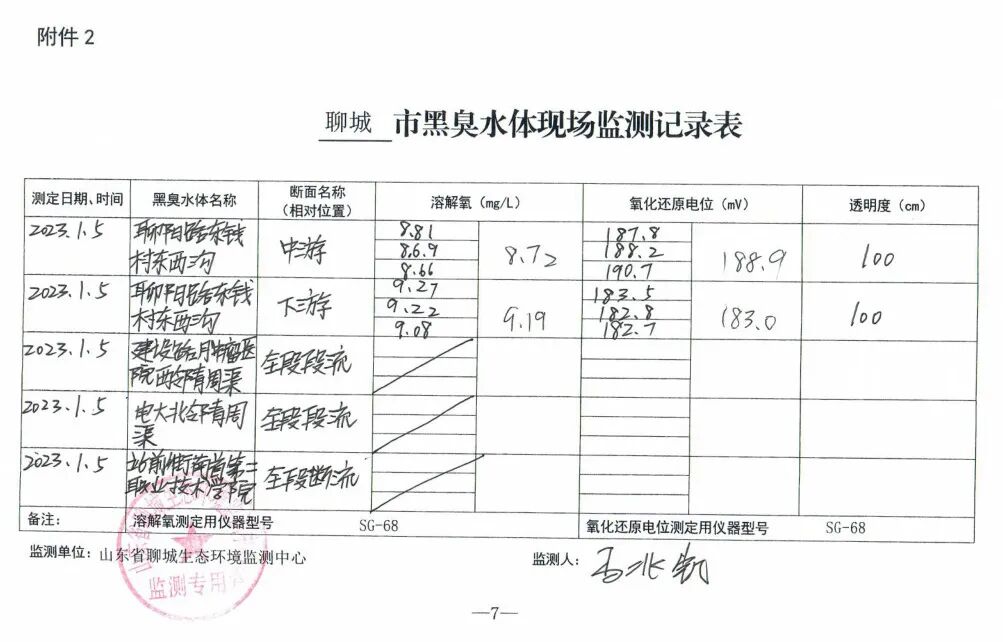 附件2
聊城 市黑臭水体现场监测记录表
测定日期、时间 黑臭水体名称 断面名称（相对位置） 溶解氧（mg/L） 氧化还原电位（mV） 透明度（cm）
2023.1.5 聊阳路东钱村东西沟 中游 8.81 8.69 8.66 8.72 187.8 188.2 190.7 188.9 100
2023.1.5 聊阳路东钱村东西沟 下游 9.27 9.22 9.08 9.19 183.5 182.8 182.7 183.0 100
2023.1.5 建设路肿瘤医院西邻青周渠 全段段流
2023.1.5 电大北邻青周渠 全段段流
2023.1.5 站前街南首第二职业技术学院 全段断流
备注： 溶解氧测定用仪器型号 SG-68 氧化还原电位测定用仪器型号 SG-68
监测单位：山东省聊城生态环境监测中心 监测人：
监测专用
—7—